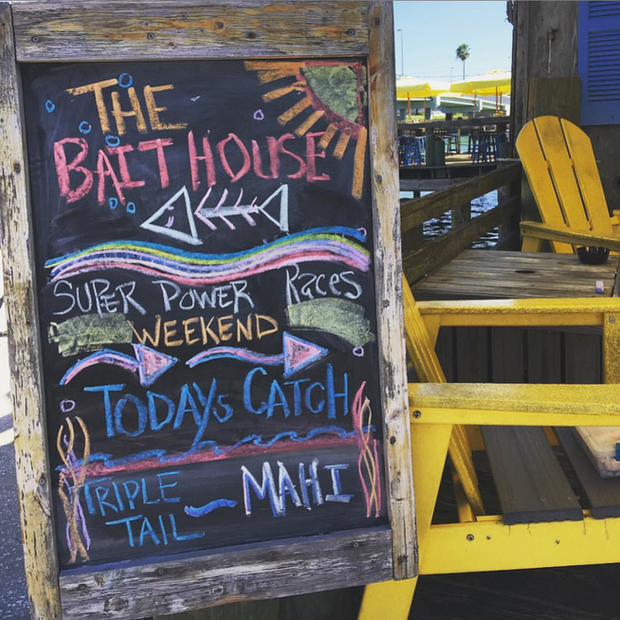 THE
BAIT HOUSE
SUPER POWER Races
WEEKEND
TODAYs CATCH
TRIPLE TAIL ~ MAHI